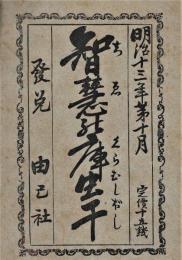 明治十三年第十月
定價十五錢
智慧鼓庫生干
ちゑ
くらむしぼし
發兌
由己社